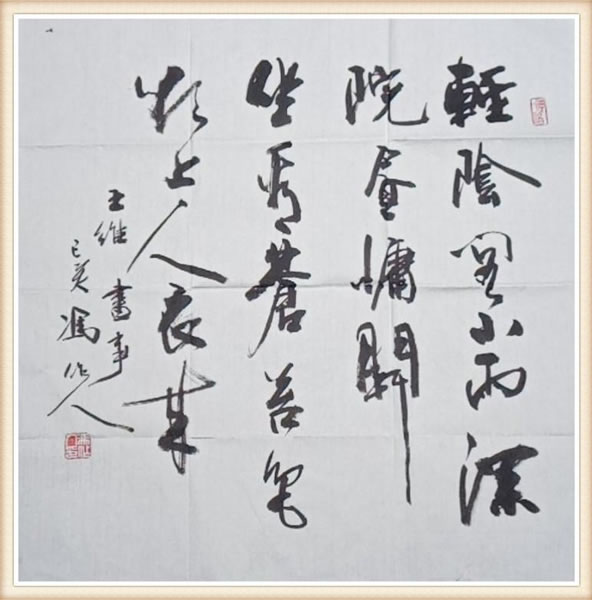 輕陰閣小雨深
院晝慵開
坐看蒼苔色
欲上人衣來
王維 書事
己亥 馮作人